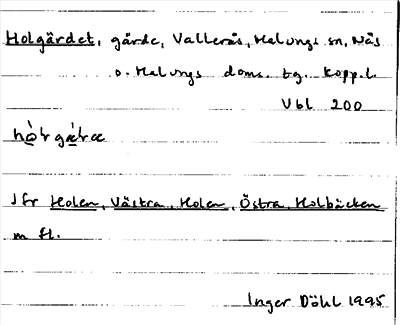 Holgärdet, gärde, Vallerås, Malungs sn, Näs
o. Malungs doms. tg. Kopp.l.
Vbl 200
hò̠rgæ̀ræ
Jfr Holen, Västra, Holen, Östra, Holbäcken
m fl.
Inger Döhl 1995